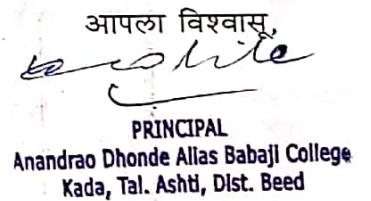 आपला विश्वासू,
PRINCIPAL
Anandrao Dhonde Alias Babaji College
Kada, Tal. Ashti, Dist. Beed